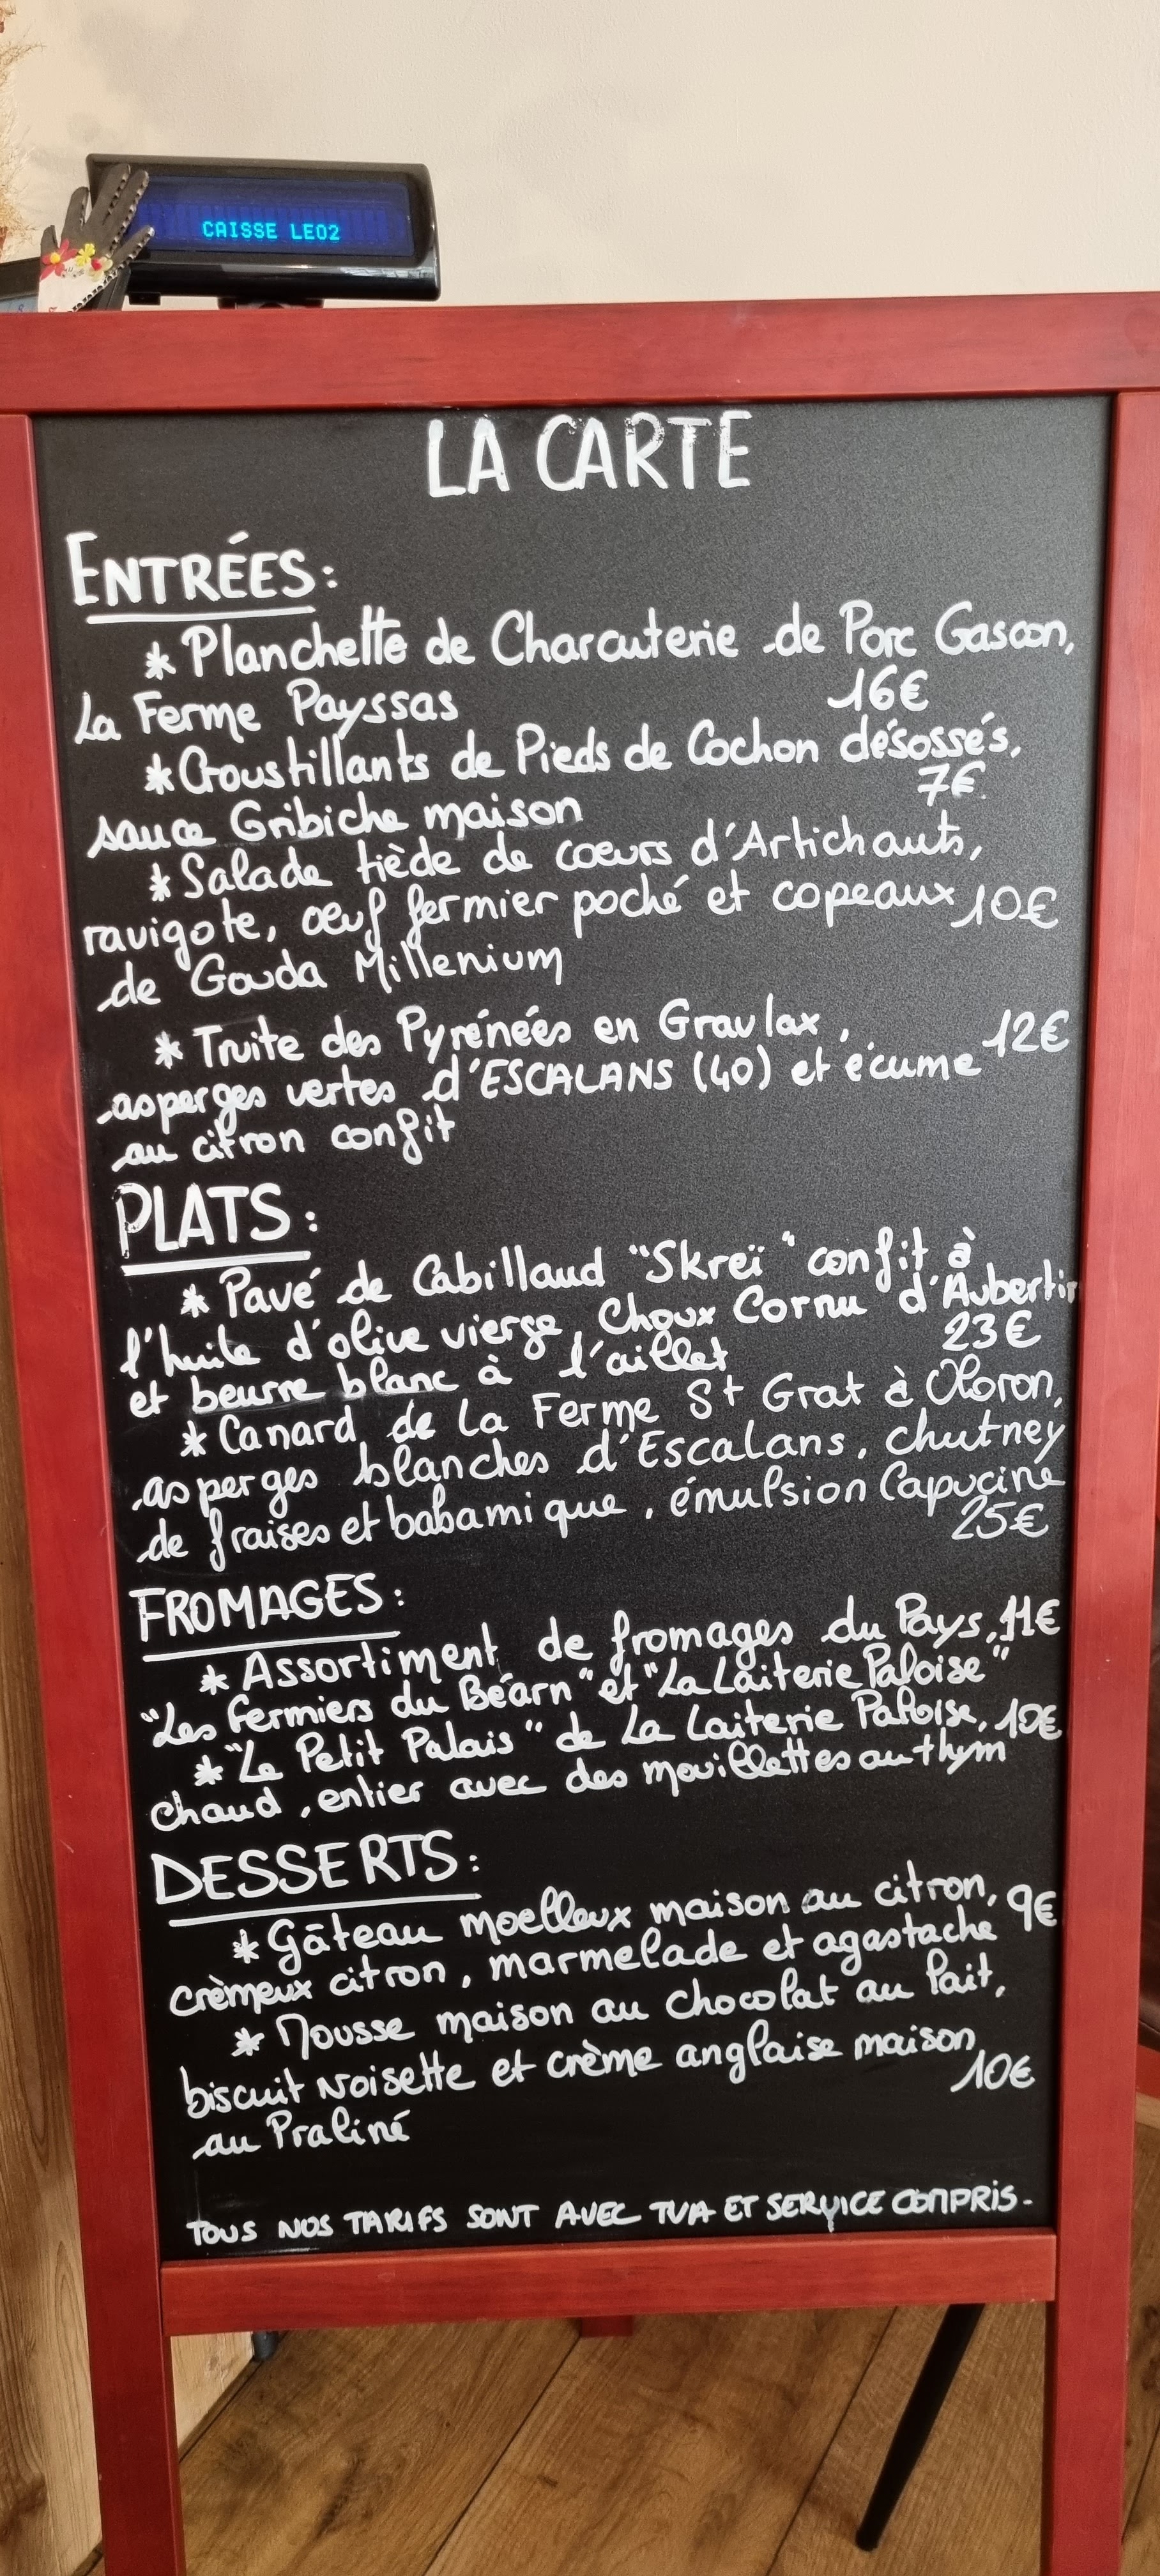 CAISSE LEO2
LA CARTE
ENTRÉES:
* Planchette de Charcuterie de Porc Gascon,
La Ferme Payssas 16€
* Croustillants de Pieds de Cochon désossés,
sauce Gribiche maison 7€
* Salade tiède de coeurs d'Artichauts,
ravigote, œuf fermier poché et copeaux 10€
de Gouda Millenium
* Truite des Pyrénées en Gravlax, 12€
asperges vertes d'ESCALANS (40) et écume
au citron confit
PLATS:
* Pavé de Cabillaud "Skreï" confit à
l'huile d'olive vierge, Choux Cornu d'Aubertin
et beurre blanc à l'aillet 23€
* Canard de la Ferme St Grat à Oloron,
asperges blanches d'Escalans, chutney
de fraises et babamique, émulsion Capucine
25€
FROMAGES:
* Assortiment de fromages du Pays, 11€
"Les Fermiers du Béarn" et "La Laiterie Paloise"
* "Le Petit Palais" de La Laiterie Paloise, 10€
chaud, entier avec des mouillettes au thym
DESSERTS:
* Gâteau moelleux maison au citron, 9€
crèmeux citron, marmelade et agastache
* Mousse maison au chocolat au lait,
biscuit Noisette et crème anglaise maison
au Praliné 10€
TOUS NOS TARIFS SONT AVEC TVA ET SERVICE COMPRIS.